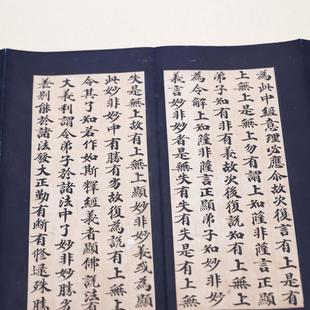 為此中經意理必應尒故次後復言有上是有
上無上是無上勿有謂上知薩非薩言正顯弟
子知有非有義故次後復說知有上無上
為令解上知薩非薩言正顯弟子知有上無上
義言妙非妙者是無失有失有失是有上無
失是無上故有上無上顯妙非妙義或為顯
此妙非妙中有勝有劣故復為說有上無上
令其了知若作如斯釋經義者顯佛說法有
大義利謂令弟子於諸法中了妙非妙勝劣
差別能於諸法發大正勤有斷有修逮殊勝